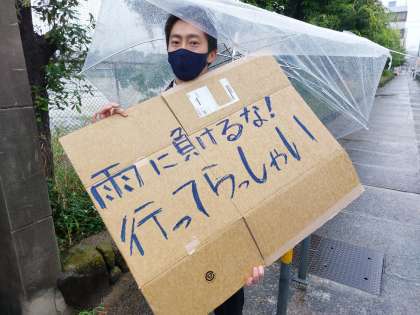 雨に負けるな!
行ってらっしゃい